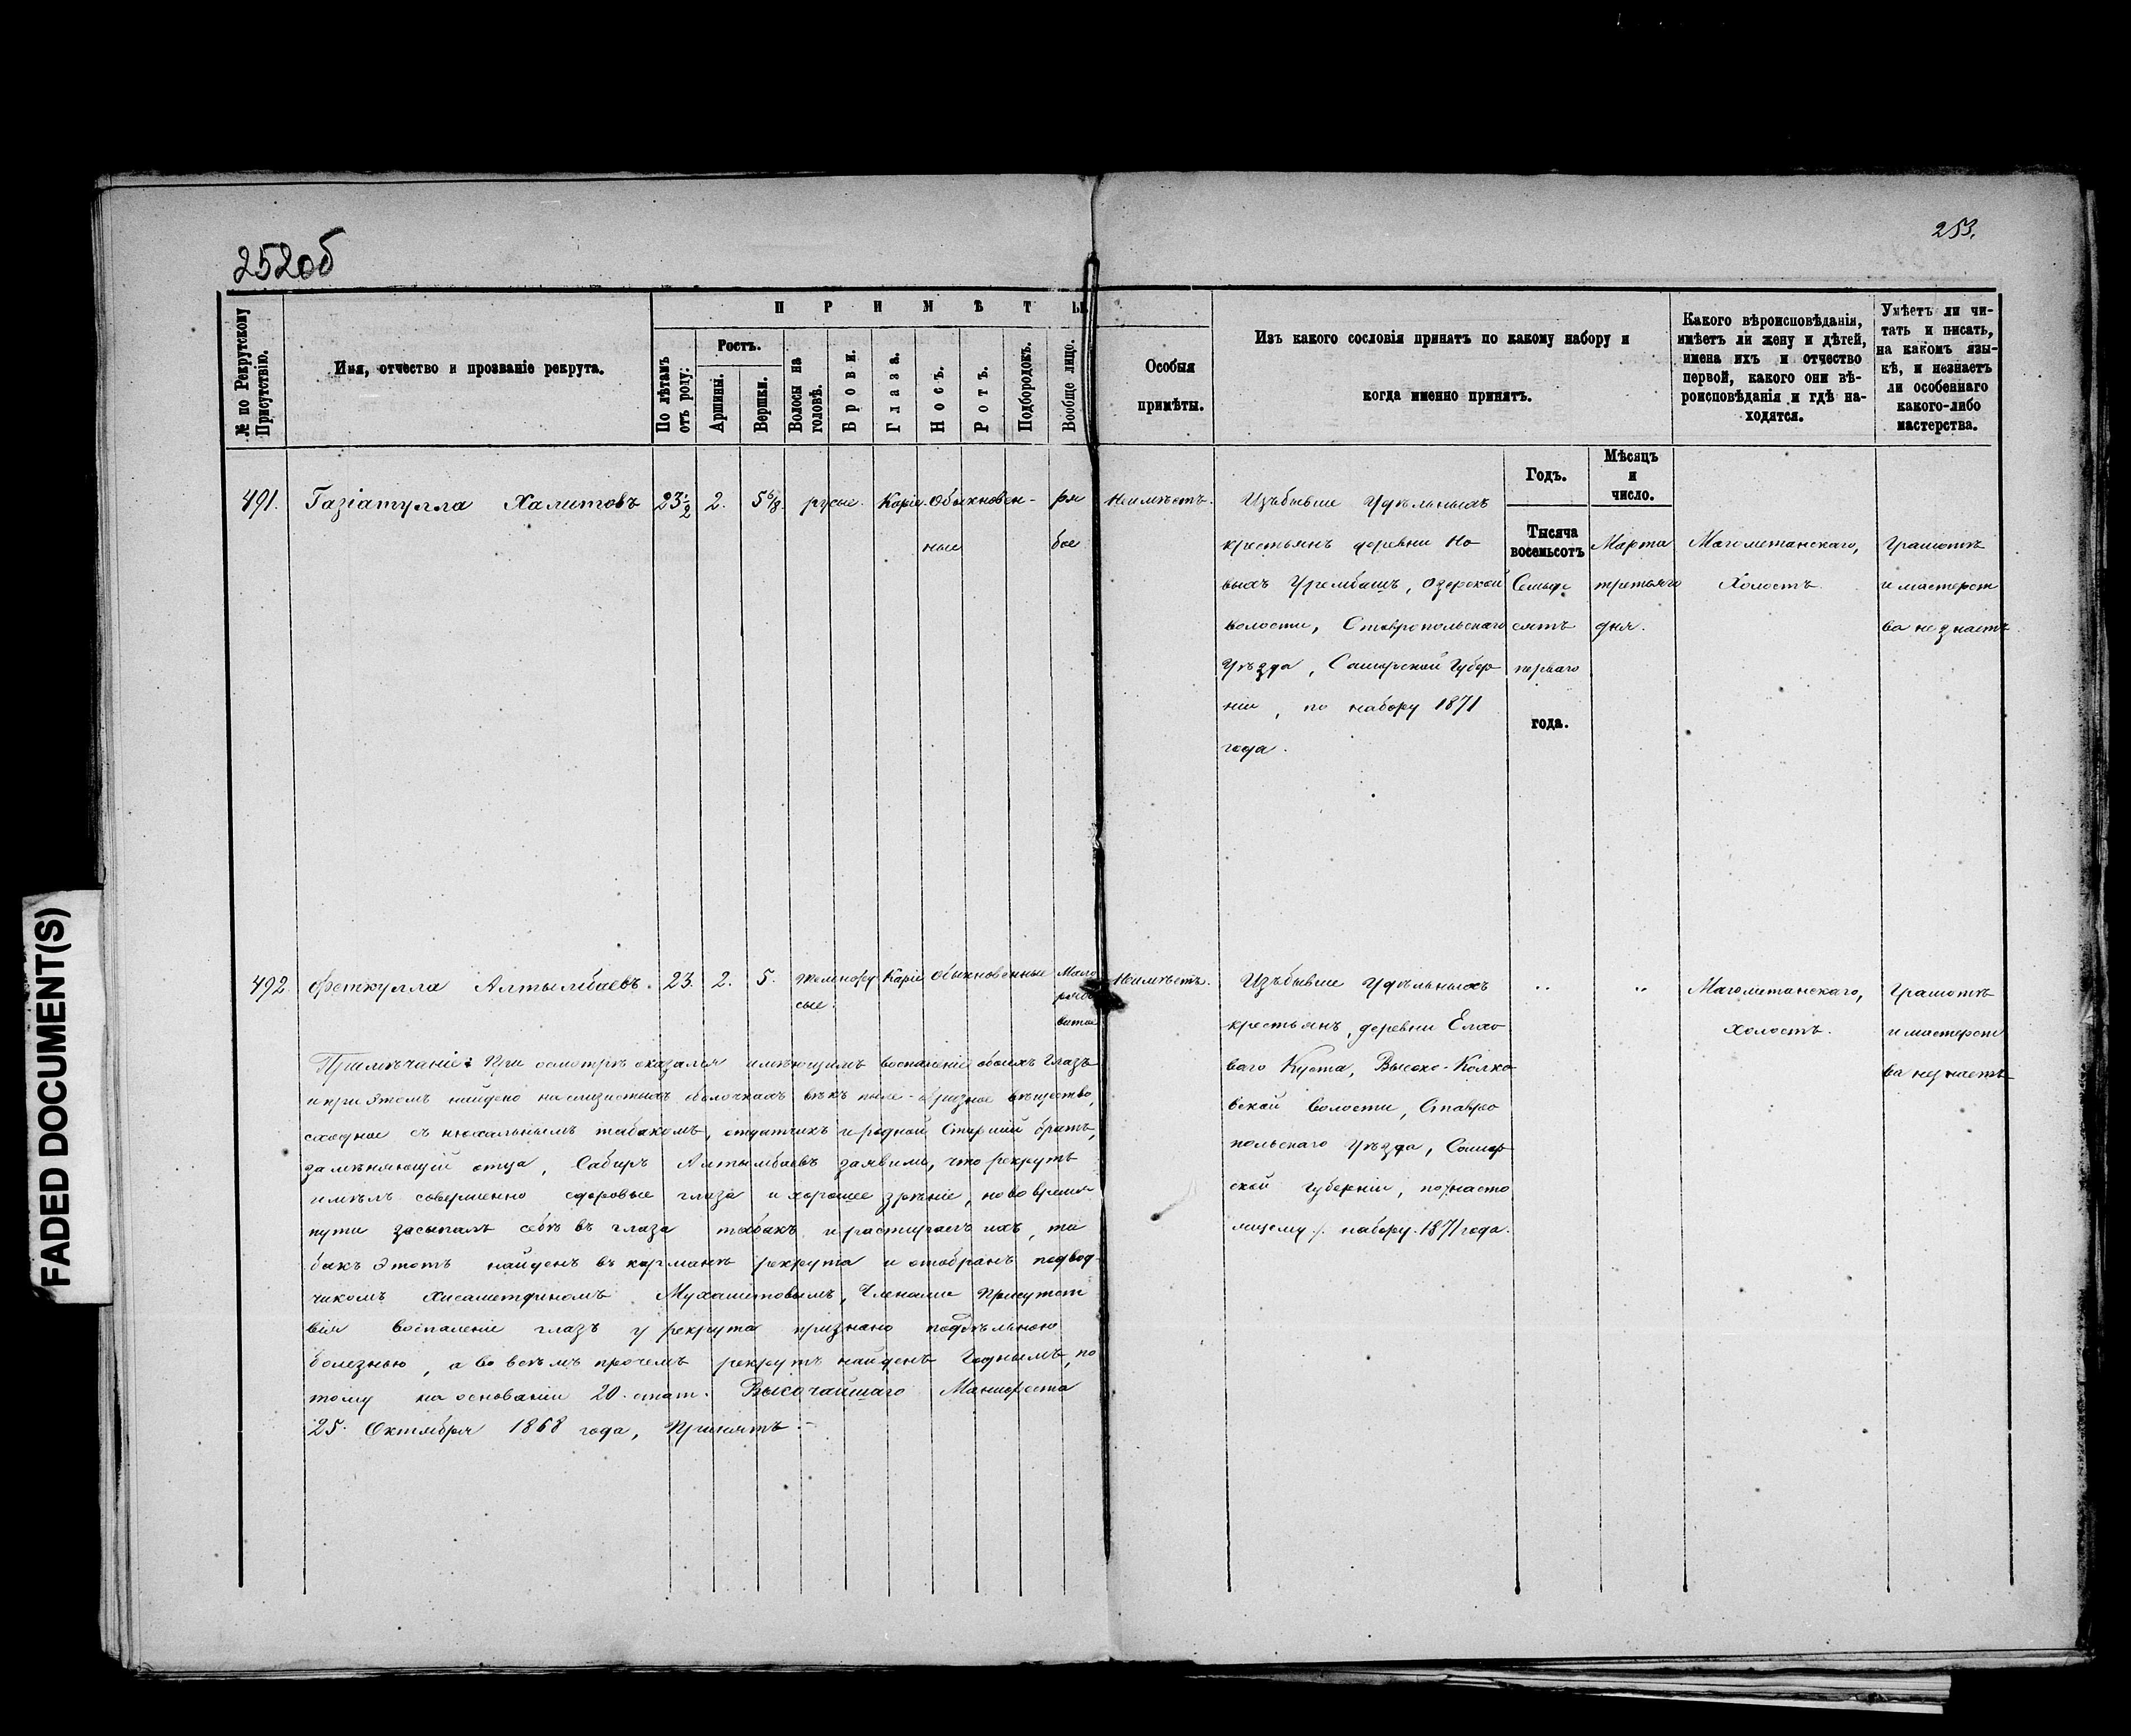 252об
253.
№ по Рекрутскому Присутствію.
Имя, отчество и прозваніе рекрута.
ПРИМѢТЫ
По лѣтамъ отъ роду:
Ростъ.
Аршины.
Вершки.
Волосы на головѣ.
Брови.
Глаза.
Носъ.
Ротъ.
Подбородокъ.
Вообще лицо.
Особыя
примѣты.
Изъ какого сословія принятъ по какому набору и
когда именно принятъ.
Какого вѣроисповѣданія,
имѣетъ ли жену и дѣтей,
имена ихъ и отчество
первой, какого они вѣ-
роисповѣданія и гдѣ на-
ходятся.
Умѣетъ ли чи-
тать и писать,
на какомъ язы-
кѣ, и незнаетъ
ли особеннаго
какого-либо
мастерства.
Годъ.
Мѣсяцъ
и
число.
491. Газіатулла Халитовъ 23½ 2. 5 6/8. русые. Каріе. Обыкновен-
ные
ря
бое
Неимѣетъ.
Изъбывше Удѣльныхъ
крестьянъ деревни Но
выхъ , Озерской
волости, Ставропольскаго
Уѣзда, Самарской Губер
ніи, по набору 1871
года.
Тысяча
восемьсотъ
Семьде
сятъ
перваго
года.
Марта
третьяго
дня.
Магометанскаго,
Холостъ.
Грамотѣ
и мастерст
ва незнаетъ
492. Феткулла Алтымбаевъ. 23. 2. 5. темнору
сые.
Каріе Обыкновенные
Мало
рябо
ватое
Неимѣетъ.
Изъбывше Удѣльныхъ
крестьянъ, деревни Елхо
ваго Куста, Высоко-Колко
вской волости, Ставро
польскаго Уѣзда, Самар
ской Губерніи, по насто
ящему набору 1871 года.
„ „
Магометанскаго,
холостъ.
Грамотѣ
и мастерст
ва незнаетъ
Примѣчаніе: При осмотрѣ оказался имѣющимъ воспаленіе обоихъ глазъ
и при этомъ найдено на слизистыхъ оболочкахъ вѣкъ пыле-образное вещество,
сходное съ нюхальнымъ табакомъ, отдатчикъ и родной Старшій братъ,
замѣняющій отца, Сабиръ Алтымбаевъ заявилъ, что рекрутъ
имѣлъ совершенно здоровые глаза и хорошее зрѣніе, но во время
пути засыпалъ себѣ въ глаза табакъ и растиралъ ихъ, та
бакъ этотъ найденъ въ карманѣ рекрута и отобранъ подвод-
чикомъ Хисаметдиномъ , Членами Присутст
вія воспаленіе глазъ у рекрута признано поддѣльною
болезнью, а во всемъ прочемъ рекрутъ найденъ Годнымъ, по
тому на основаніи 20. стат. Высочайшаго Манифеста
25. Октября 1868 года, Принятъ.-
FADED DOCUMENT(S)